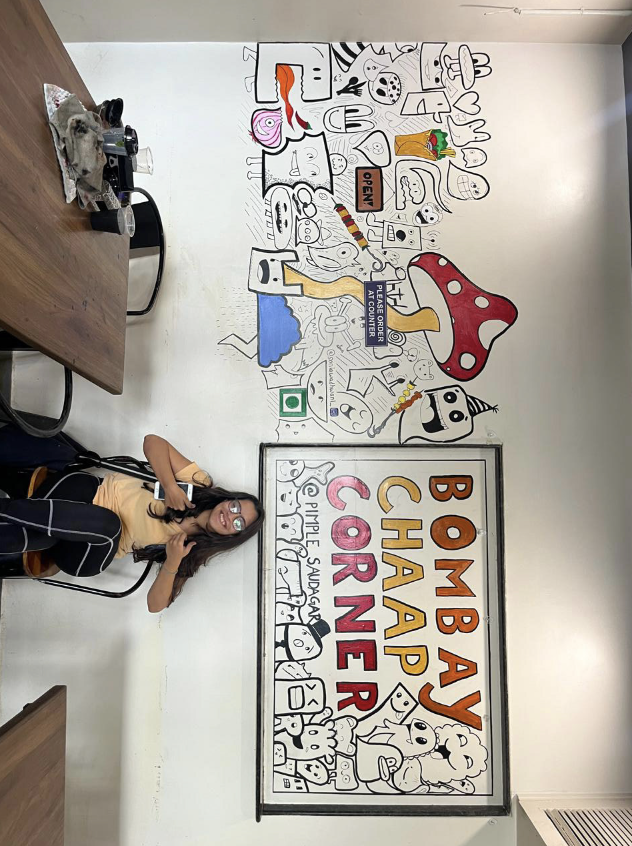 OPEN!
PLEASE ORDER
AT COUNTER
BOMBAY
CHAAP
CORNER
@ PIMPLE SAUDAGAR